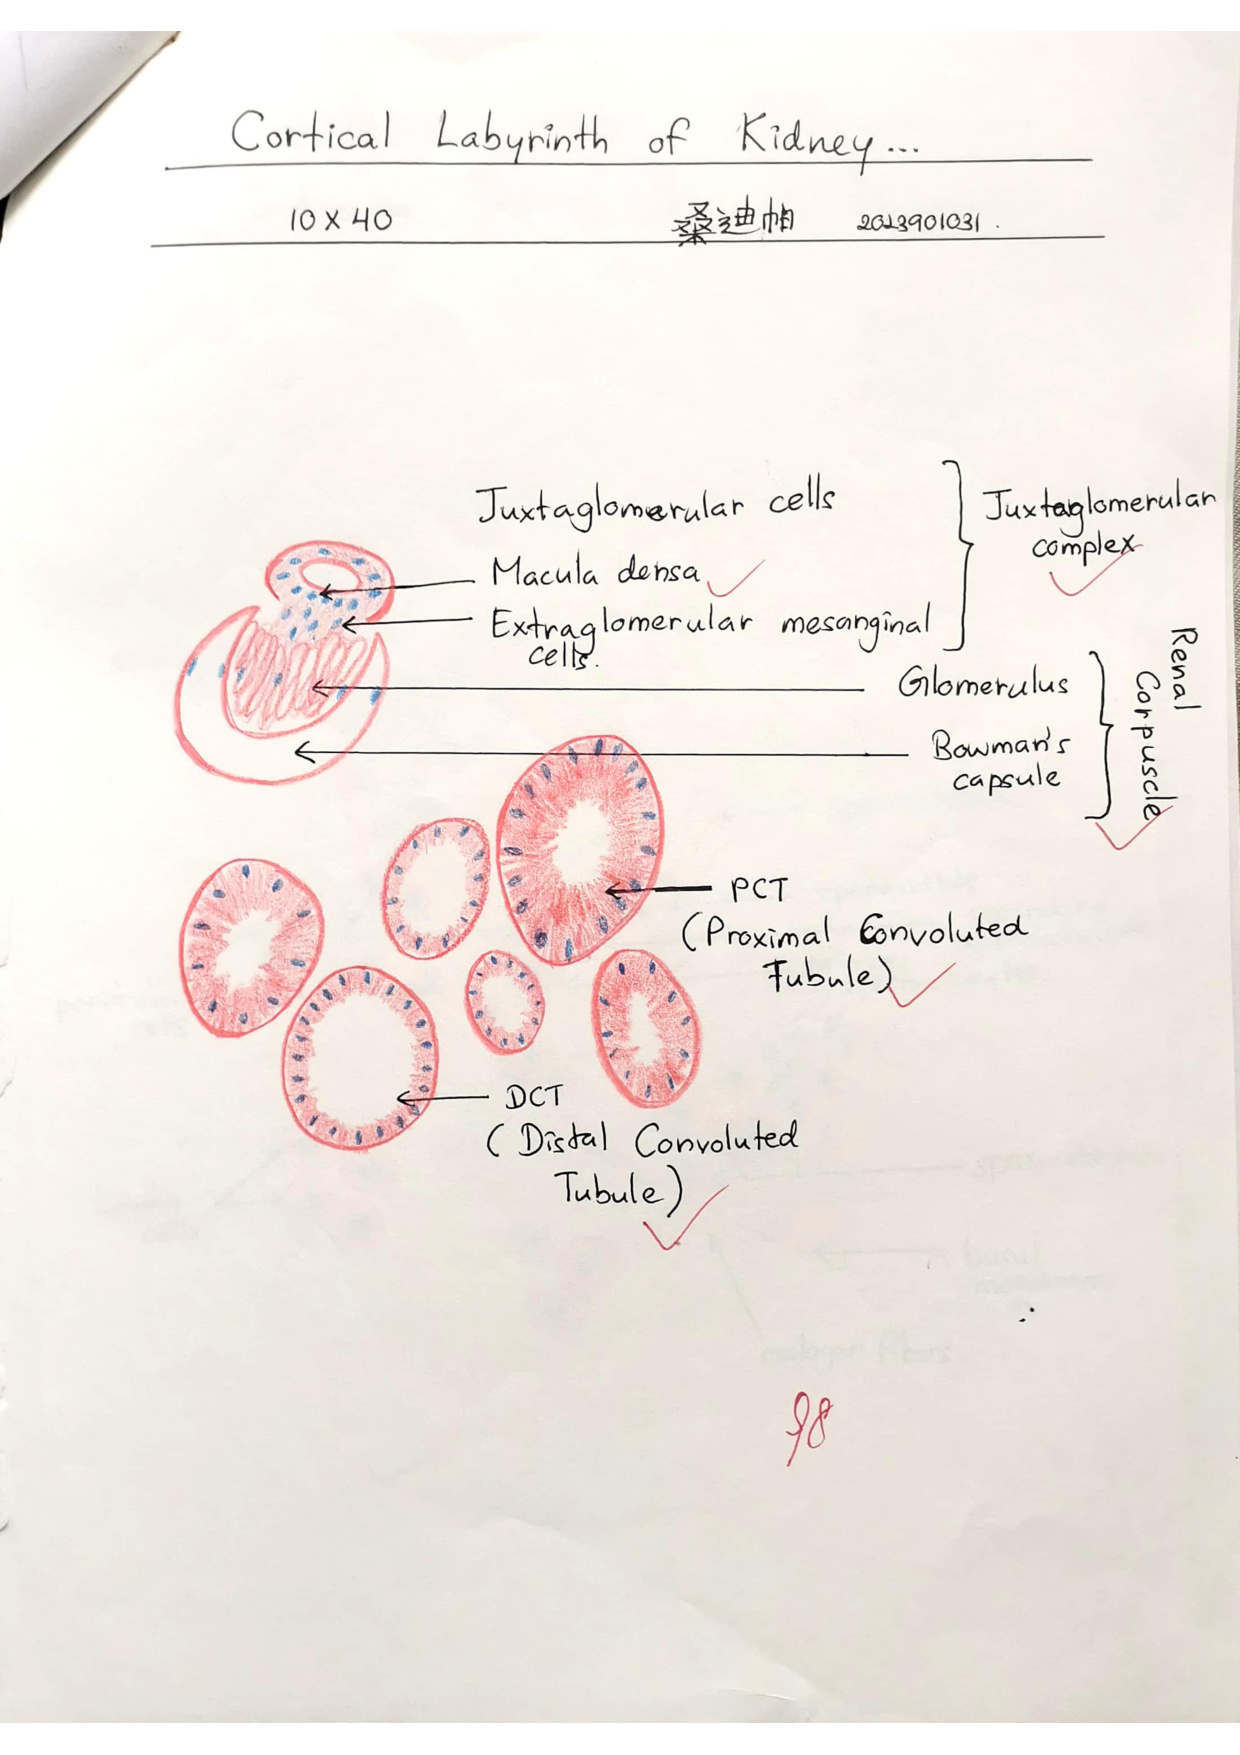 Cortical Labyrinth of Kidney...
10 X 40 桑迪帕 2023901031.
Juxtaglomerular cells
Macula densa
Extraglomerular mesanginal
cells.
Juxtaglomerular
complex
Glomerulus
Bowman's
capsule
Renal
Corpuscle
PCT
(Proximal Convoluted
Tubule)
DCT
(Distal Convoluted
Tubule)
98